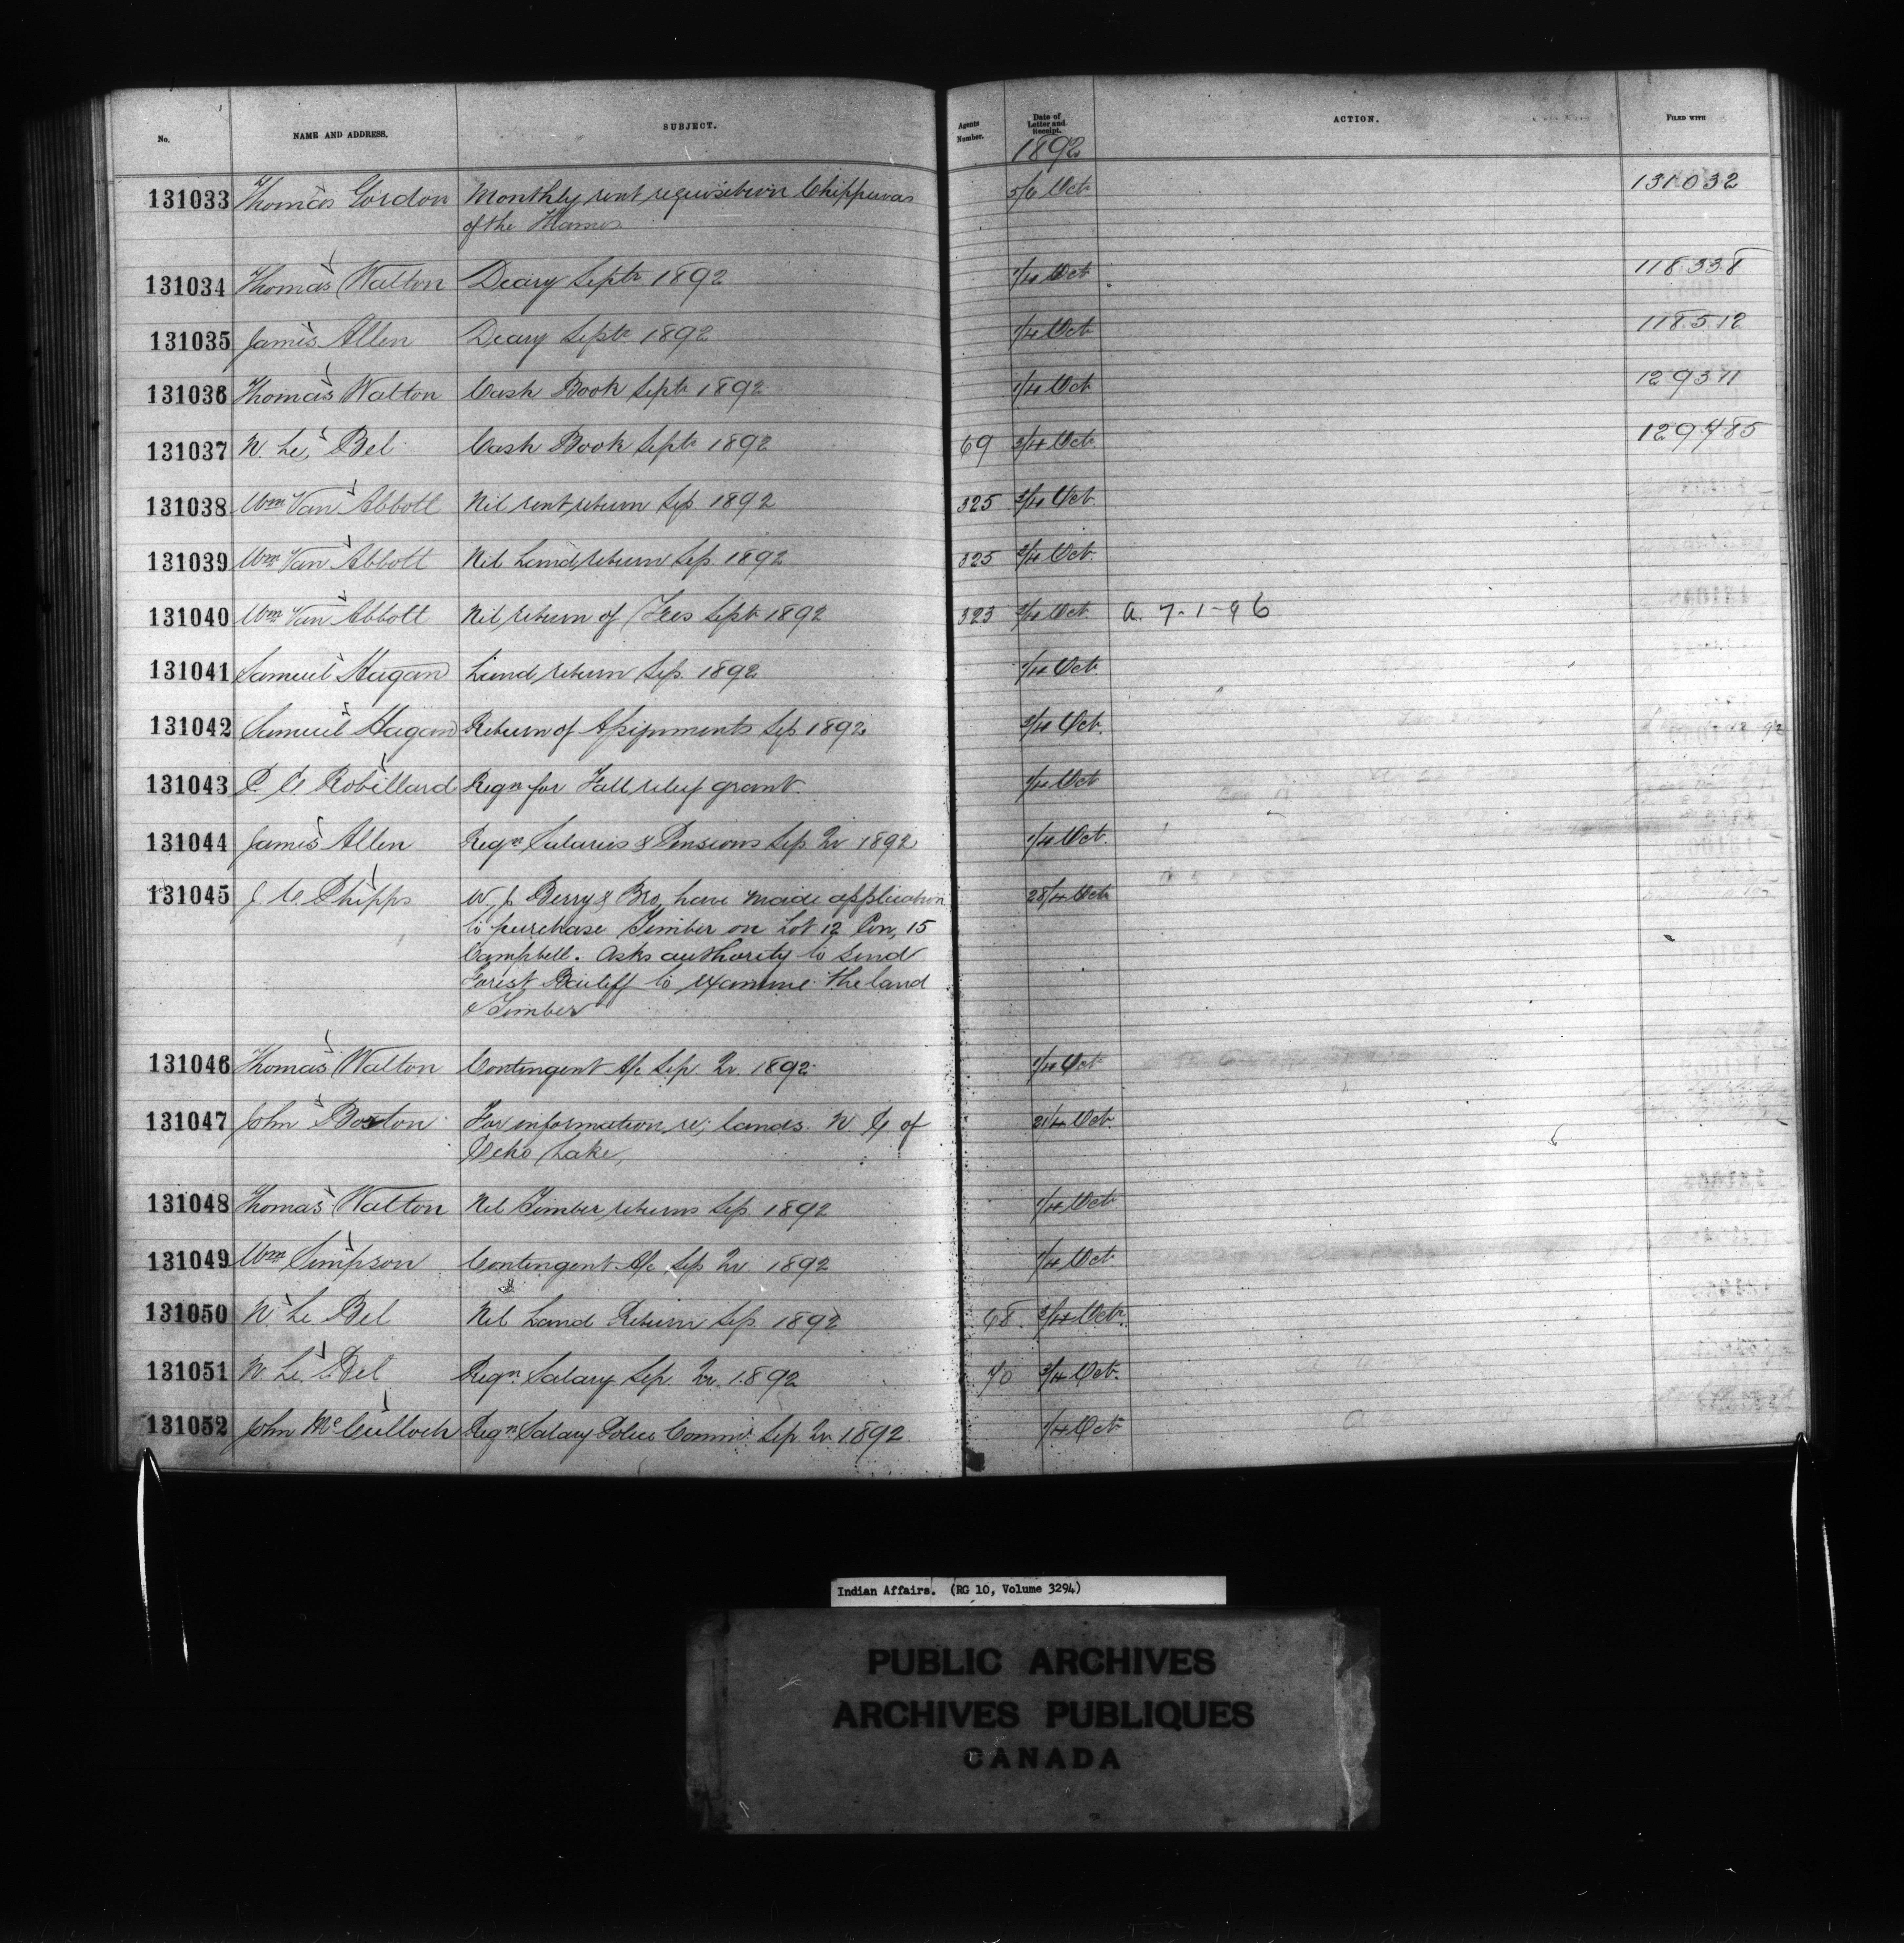 No. NAME AND ADDRESS. SUBJECT. Agents Number. Date of Letter and Receipt. ACTION. FILED WITH
1892
131033 Thomas Gordon Monthly rent requisition Chippewas 5/6 Oct 131032
of the Thames
131034 Thomas Walton Diary Septr 1892 1/4 Oct 118338
131035 James Allen Diary Septr 1892 1/4 Oct 118512
131036 Thomas Walton Cash Book Septr 1892 1/4 Oct 129371
131037 N. Le Bel Cash Book Septr 1892 69 3/4 Oct. 129485
131038 Wm Van Abbott Nil rent return Sep. 1892 325 3/4 Oct.
131039 Wm Van Abbott Nil Land return Sep. 1892 325 3/4 Oct.
131040 Wm Van Abbott Nil return of Fees Septr 1892 323 3/4 Oct a. 7-1-96
131041 Samuel Hagan Land return Sep. 1892 1/4 Oct.
131042 Samuel Hagan Return of Assignments Sep 1892 3/4 Oct.
131043 P. E. Robillard Reqn for Fall relief grant. 1/4 Oct
131044 James Allen Reqn Salaries & Pensions Sep Qr 1892 1/4 Oct.
131045 J. C. Phipps W. J. Berry & Bro, have made application 28/4 Oct
to purchase Timber on Lot 12 Con, 15
Campbell. Asks authority to send
Forest Bailiff to examine the land
& Timber
131046 Thomas Walton Contingent A/c Sep. Qr. 1892 1/4 Oct
131047 John Boxton For information re; lands N. E of 21/4 Oct.
Echo Lake,
131048 Thomas Walton Nil Timber returns Sep. 1892 1/4 Oct
131049 Wm Simpson Contingent A/c Sep Qr 1892 1/4 Oct
131050 N. Le Bel Nil Land Return Sep. 1892 68. 3/4 Oct.
131051 N. Le Bel Reqn Salary Sep. Qr. 1892 70 3/4 Oct.
131052 John McCulloch Reqn Salary Police Commr Sep. Qr 1892 1/4 Oct
Indian Affairs. (RG 10, Volume 3294)
PUBLIC ARCHIVES
ARCHIVES PUBLIQUES
CANADA